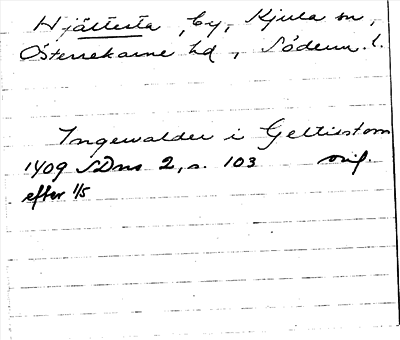 Hjältesta, by, Kjula sn,
Österrekarne hd, Söderm. l.
Ingewalder i Geltiestom
1409 SDns 2, s. 103 orig.
efter 1/5